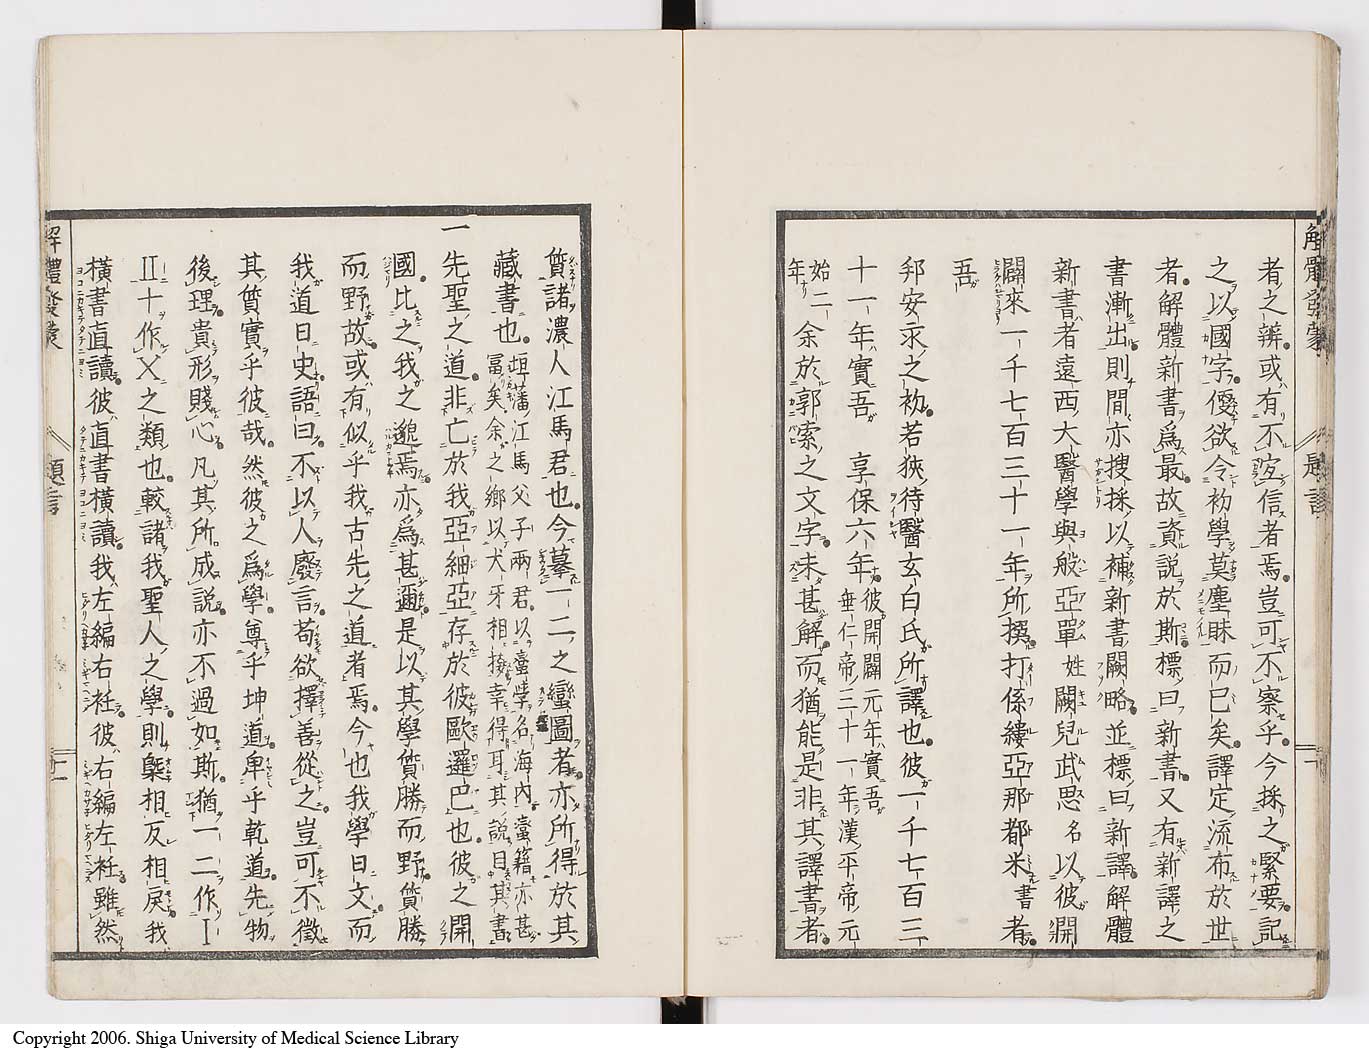 解體發蒙
題言
者之辨或有不宐信者焉豈可不察乎今採之緊要記
之以國字優欲令初學莫塵眛而已矣譯定流布於世
者解體新書爲最故資説於斯標曰新書又有新譯之
書漸出則間亦搜採以補新書闕略並標曰新譯解體
新書者遠西大醫學與般亞單姓闕兒武思名以彼開
闢來一千七百三十一年所撰打係縷亞那都米書者
吾
邦安永之初若狹待醫玄白氏所譯也彼一千七百三
十一年實吾 享保六年彼開闢元年實吾
垂仁帝三十一年漢平帝元
始二
年
余於郭索之文字未甚解而猶能是非其譯書者
質諸濃人江馬君也今摹一二之蠻圖者亦所得於其
藏書也
垣藩江馬父子兩君以蠻學名海内蠻籍亦甚
冨矣余之鄉以犬牙相接幸得耳其説目其書
一
先聖之道非亡於我亞細亞存於彼歐邏巴也彼之開
國比之我之邈焉亦爲甚邇是以其學質勝而野質勝
而野故或有似乎我古先之道者焉今也我學日文而
我道日史語曰不以人廢言苟欲擇善從之豈可不徵
其質實乎彼哉然彼之爲學尊乎坤道卑乎乾道先物
後理貴形賤心凡其所成説亦不過如斯猶一二作I
II十作X之類也較諸我聖人之學則槩相反相戾我
橫書直讀彼直書橫讀我左編右衽彼右編左衽雖然
解體發蒙
題言
Copyright 2006. Shiga University of Medical Science Library